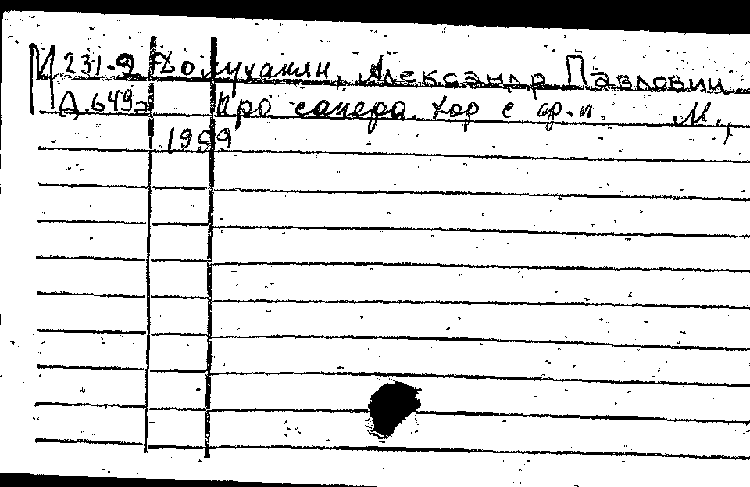 И 231-9 Долуханян, Александр Павлович
Д.649 Про сапера. Хор с ф.-п. М.,
1959